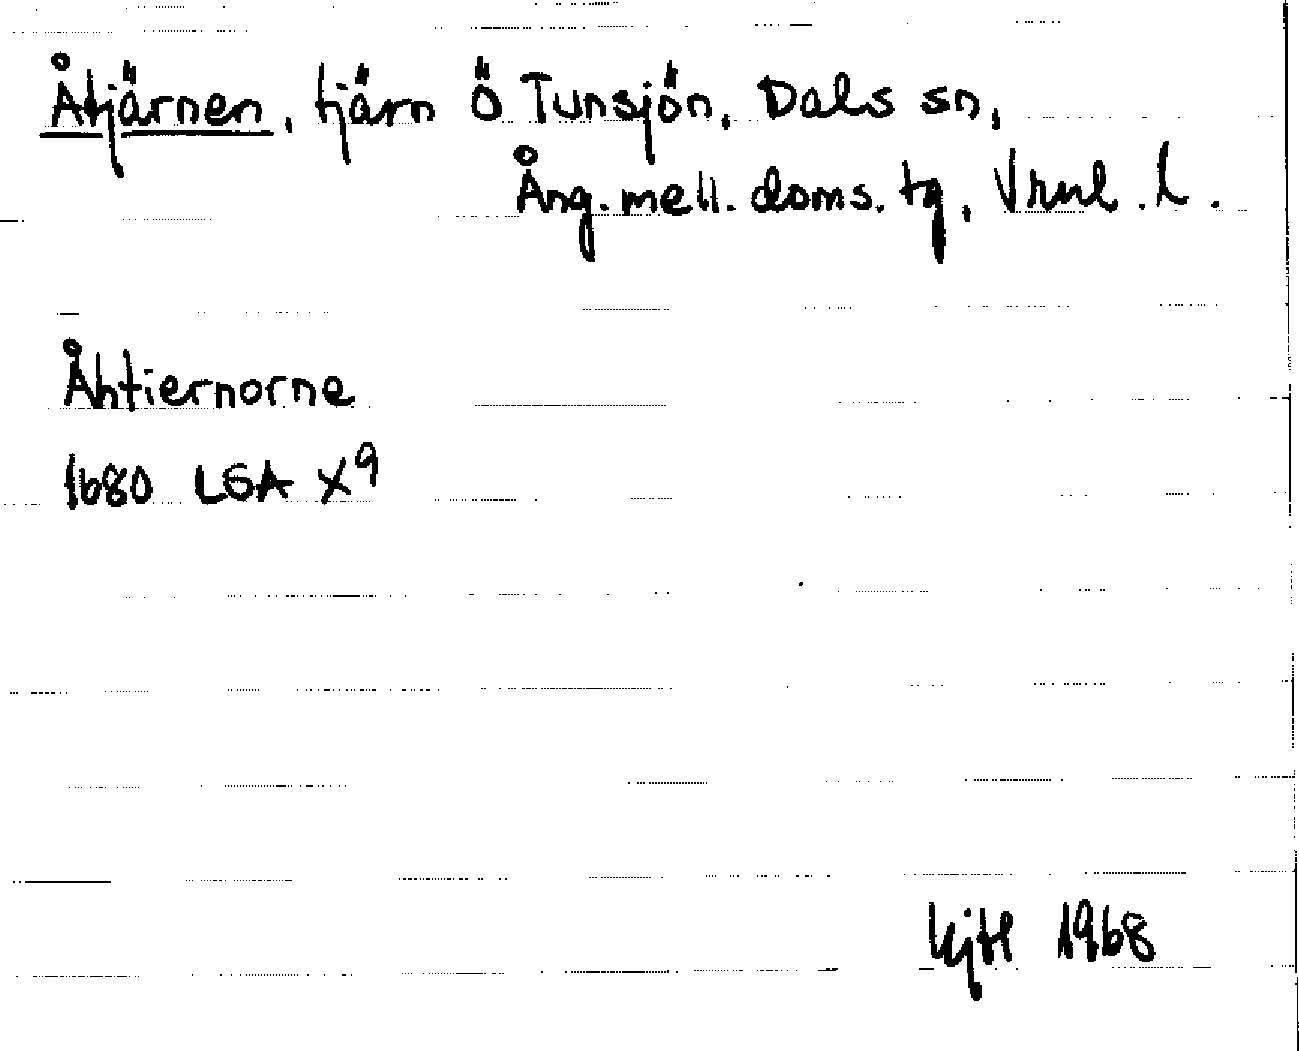 Åtjärnen, tjärn Ö Tunsjön, Dals sn,
Ång. mell. doms. tg, Vrnl. l.
Åhtiernorne
1680 LSA X9
1968